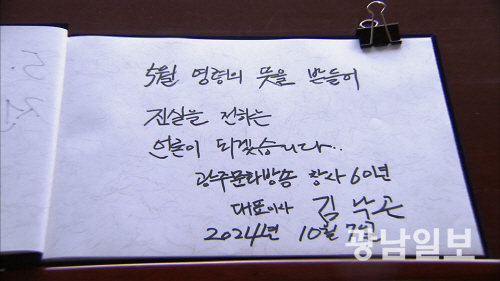 5월 영령의 뜻을 받들어
진실을 전하는
언론이 되겠습니다..
광주문화방송 창사 60년
대표이사 김낙곤
2024년 10월 7일
광남일보